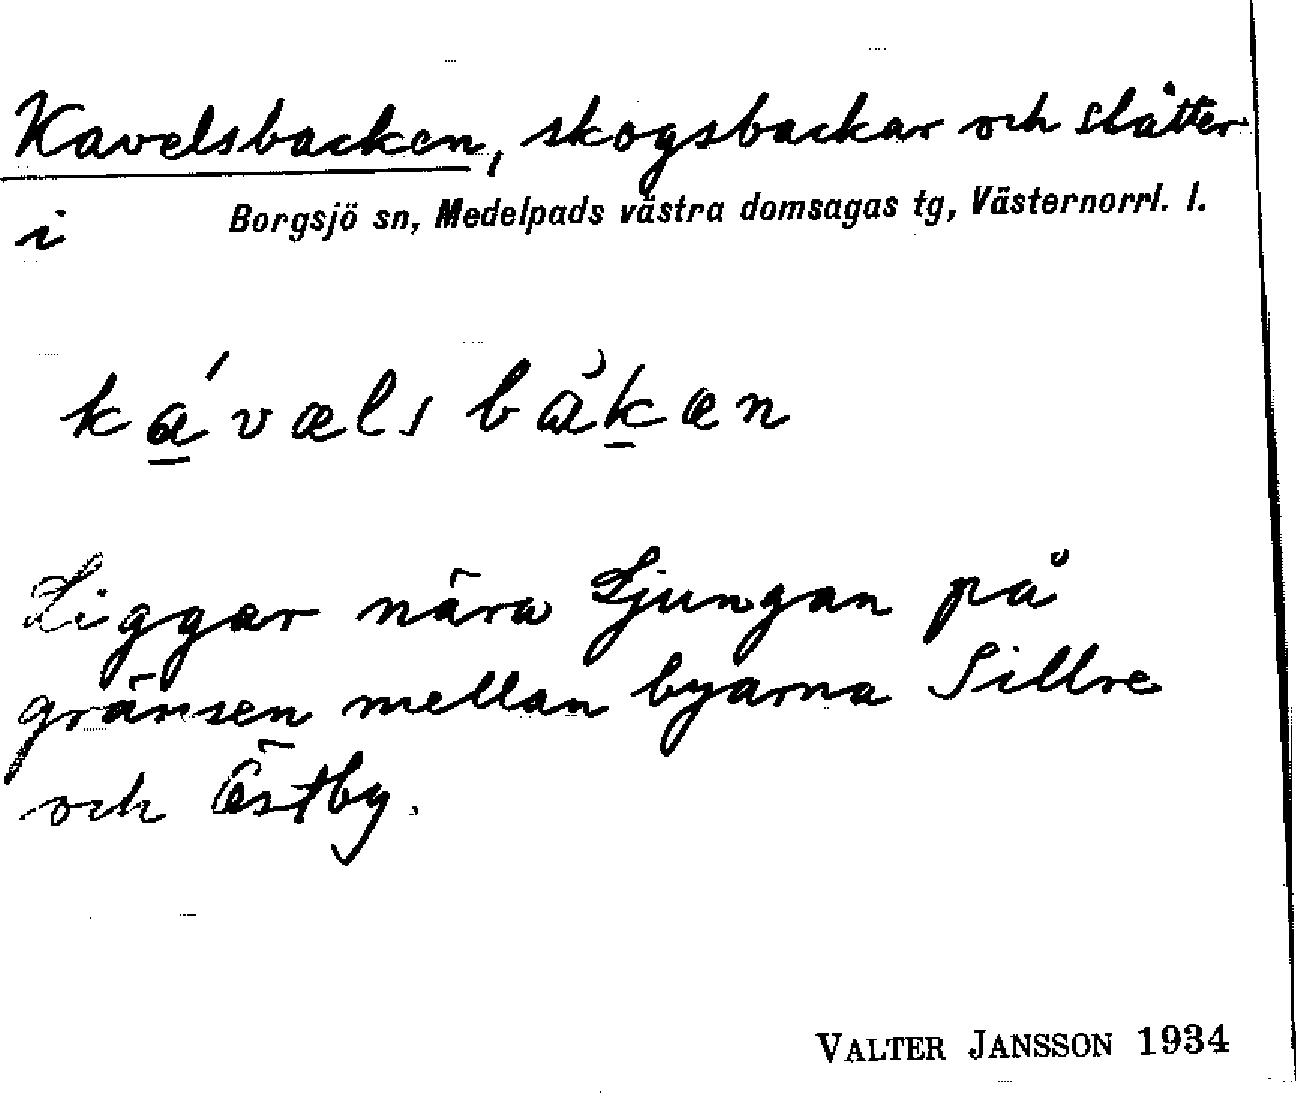 Kavelsbacken, skogsbackar och slåtter
i Borgsjö sn, Medelpads västra domsagas tg, Västernorrl. l.
ká̱vælsbàḵæn
Liggar nära Ljungan på
gränsen mellan byarna Sillre
och Östby.
VALTER JANSSON 1934